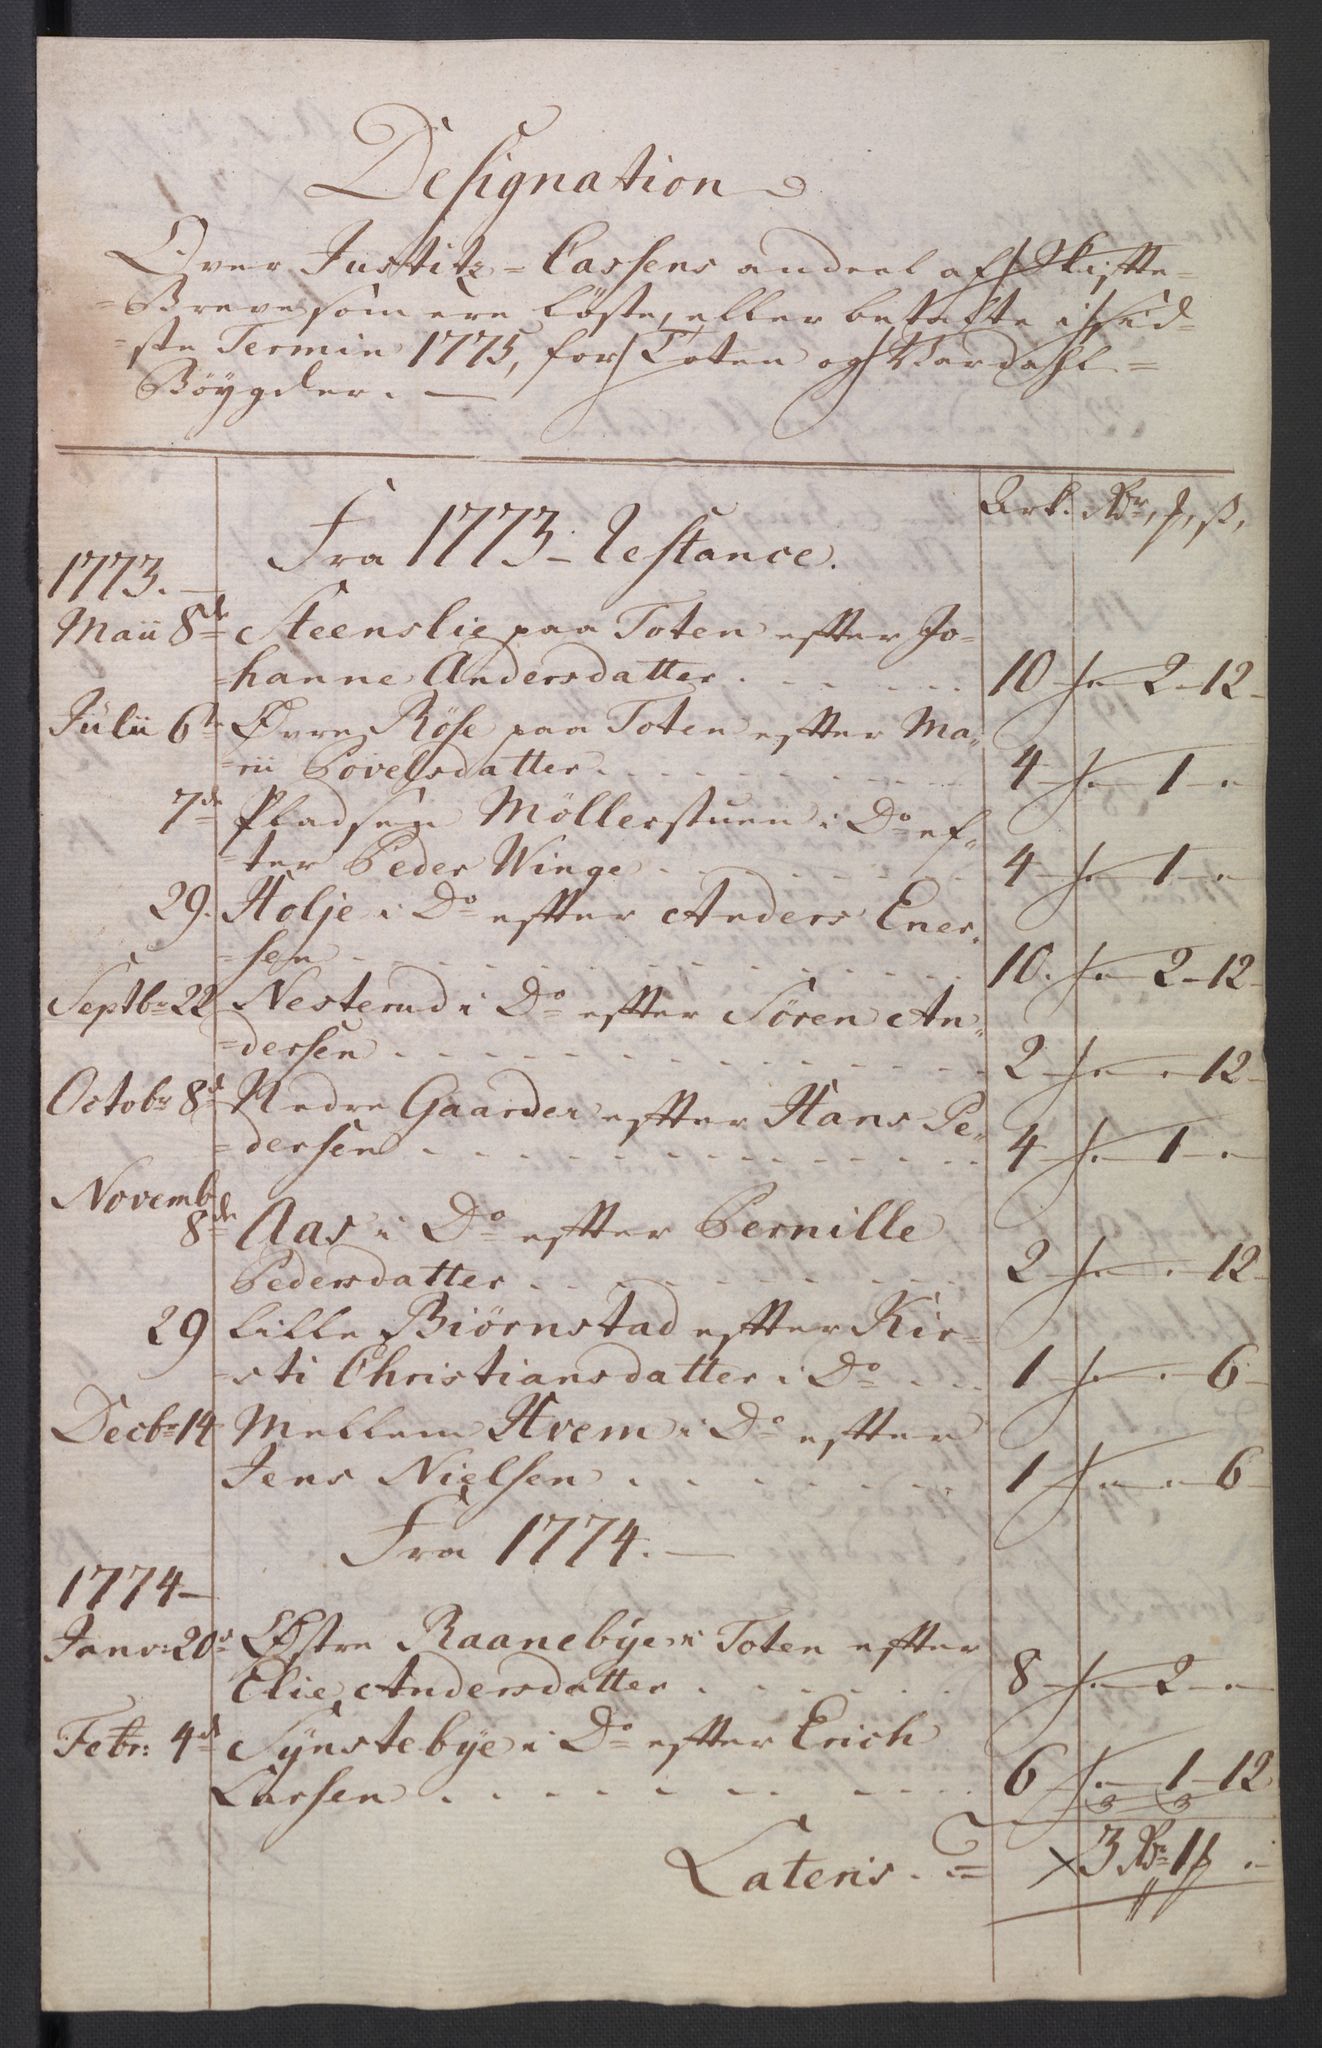 Designation
Over Justitz=Cassens andeel af Skifte=
=Breve som ere löste, eller betalte i sid=
=ste Termin 1775, for Toten og Vardahls=
Böygder. —
Ark. Rdr, ₰, ß,
Fra 1773 – Restance.
1773. —
Maii 8de Steenslie paa Toten efter Jo=
=hanne Andersdatter . . . . . . 10 – „ – 2 – 12 –
Julii 6te Øvre Röse paa Toten efter Ma=
=rii Povelsdatter . . . . . . 4 – „ – 1 – „
7de Pladsen Möllerstuen i Do ef=
=ter Peder Winge . . . . . . 4 – „ – 1 – „
29. Holje i Do efter Anders Ener=
=sen . . . . . . 10. „ – 2 – 12 –
Septbr 22 Nesterud i Do efter Sören An=
=dersen . . . . . . 2 – „ – „ – 12 –
Octobr 8de Nedre Gaarder efter Hans Pe=
=dersen . . . . . . 4 – „ – 1 – „
Novemb
8de Aas i Do efter Pernille
Pedersdatter . . . . . . 2 – „ – „ – 12 –
29 Lille Biörnstad efter Kir=
=sti Christiansdatter i Do . . . 1 – „ – „ – 6 –
Decbr 14 Mellem Hvem i Do efter
Jens Nielsen . . . . . . 1 – „ – „ – 6 –
Fra 1774. —
1774 —
Janv: 20de Østre Raanebye i Toten efter
Elie Andersdatter . . . . . . 8 – „ – 2 – „
Febr: 4de Synstebye i Do efter Erich
Larsen . . . . . . 6 – „ – 1 – 12
Lateris . = 3 Rdr 1 ₰ „ –